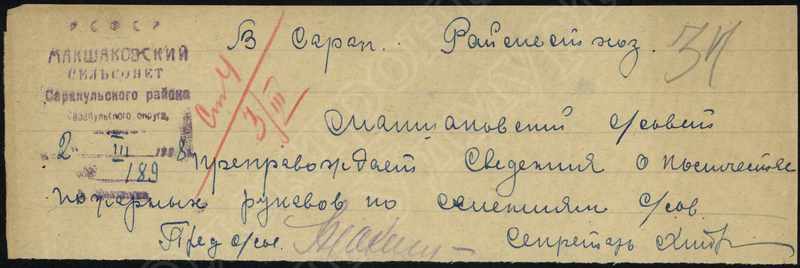 РСФСР
МАКШАКОВСКИЙ
СЕЛЬСОВЕТ
Сарапульского района
Сарапульского округа,
2 III 1928
189
3/III
34
В Сарап. Райместхоз.
Макшаковский с/совет
препровождает сведения о количестве
пожарных рукавов по селениям с/сов.
Пред с/сов.
Секретарь